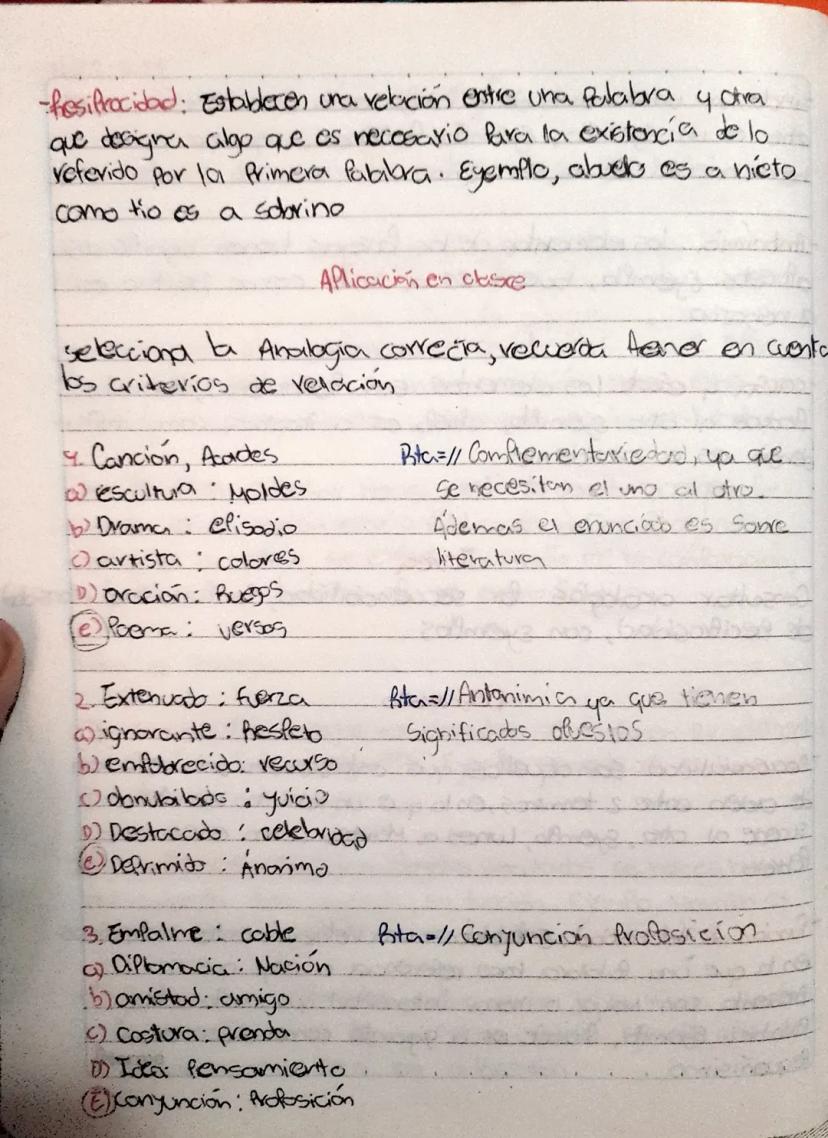 -Resiprocidad: Establecen una relación entre una Palabra y otra
que designa algo que es necesario Para la existencía de lo
referido por la Primera Palabra. Eyemplo, abuelo es a nieto
como tio es a sobrino
Aplicación en clase
selecciona la Analogia correcta, recuerda tener en cuenta
los criterios de relación
1. Canción, Acordes
a) escultura: Moldes
b) Drama: episodio
c) artista: colores
D) oración: Ruegos
e) Poema: versos
Rta=// Complementariedad, ya que
se necesitan el uno al otro.
Ademas el enunciado es sobre
literatura
2. Extenuado: fuerza
a) ignorante: Respeto
b) empobrecido: recurso
c) obnubilado: yuicio
D) Destacado: celebridad
e) Deprimido: Ánonimo
Rta=// Antonimia ya que tienen
significados opuestos
3. Empalme: cable
a) Diplomacia: Nación
b) amistad: amigo
c) costura: prenda
D) Idea: Pensamiento
E) conyunción: Proposición
Rta=// Conyunción Proposición